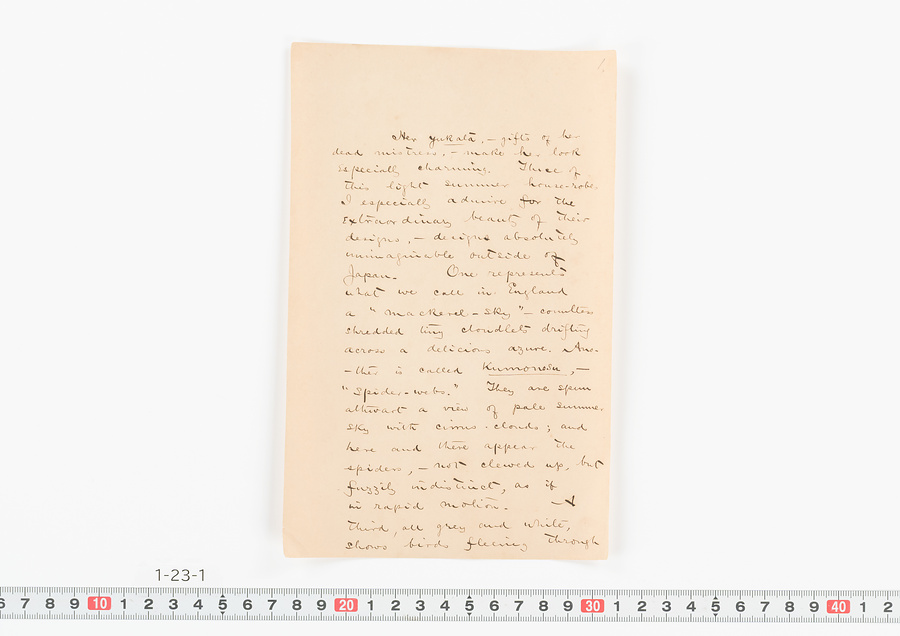 1.
Her yukata, – gifts of her
dead mistress, – make her look
especially charming. Three of
this light summer house-robe
I especially admire for the
extraordinary beauty of their
designs, – designs absolutely
unimaginable outside of
Japan. One represents
what we call in England
a "mackerel-sky" – countless
shredded tiny cloudlets drifting
across a delicious azure. Ano-
-ther is called Kumonosu, –
"Spider-webs." They are spun
athwart a view of pale summer
sky with cirrus-clouds; and
here and there appear the
spiders, – not clewed up, but
fuzzily indistinct, as if
in rapid motion. – A
third, all grey and white,
shows birds fleeing through
1-23-1
6 7 8 9 10 1 2 3 4 5 6 7 8 9 20 1 2 3 4 5 6 7 8 9 30 1 2 3 4 5 6 7 8 9 40 1 2